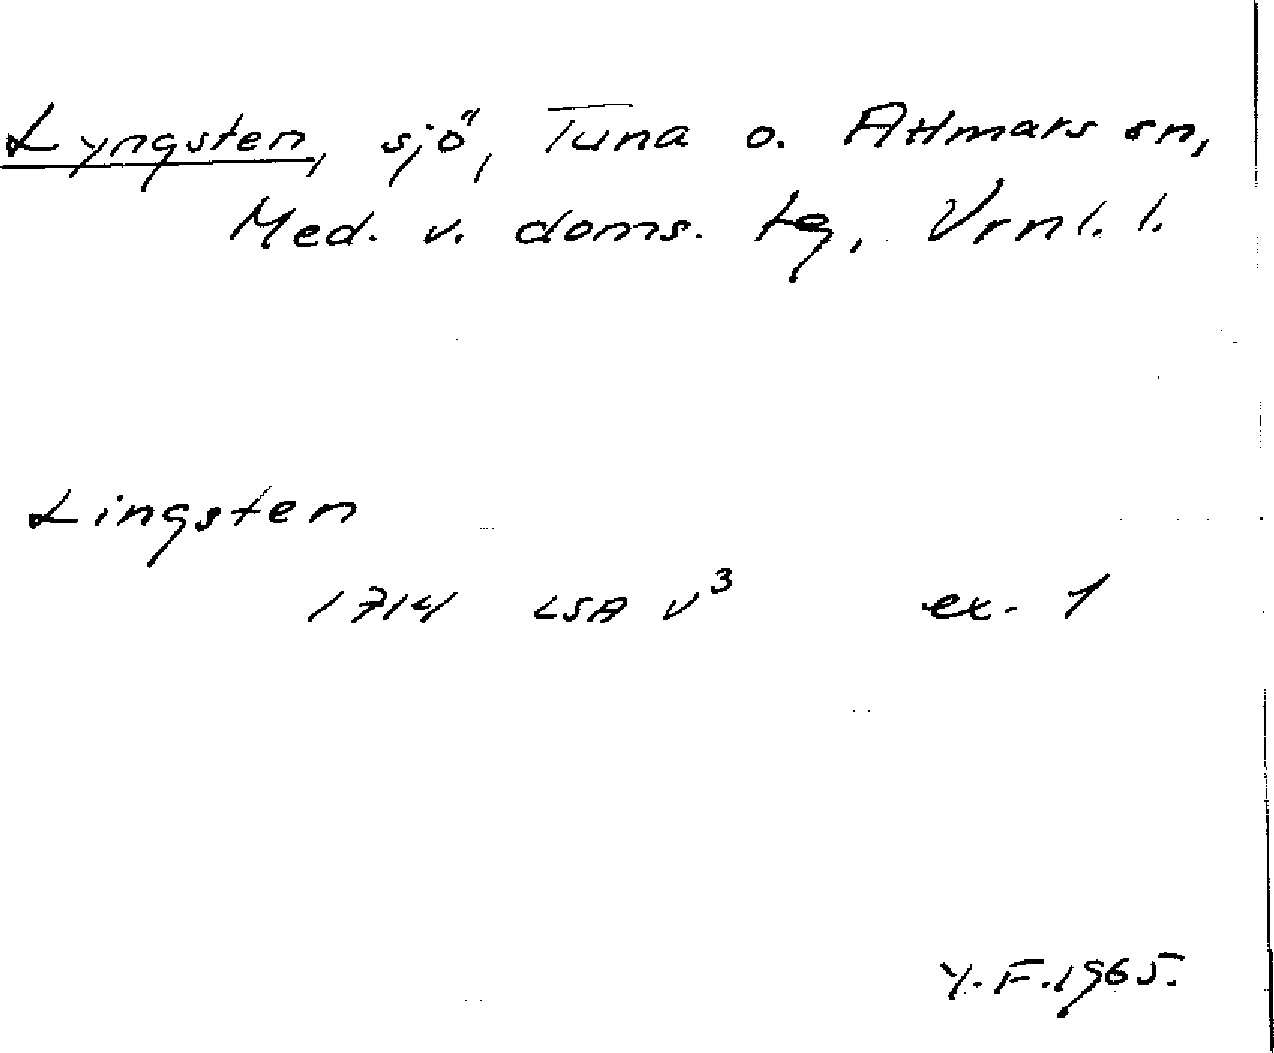 Lyngsten, sjö, Tuna o. Attmars sn,
Med. v. doms. tg, Vrnl. l.
Lingsten
1714 LSA v³ ex. 1
Y.F. 1965.